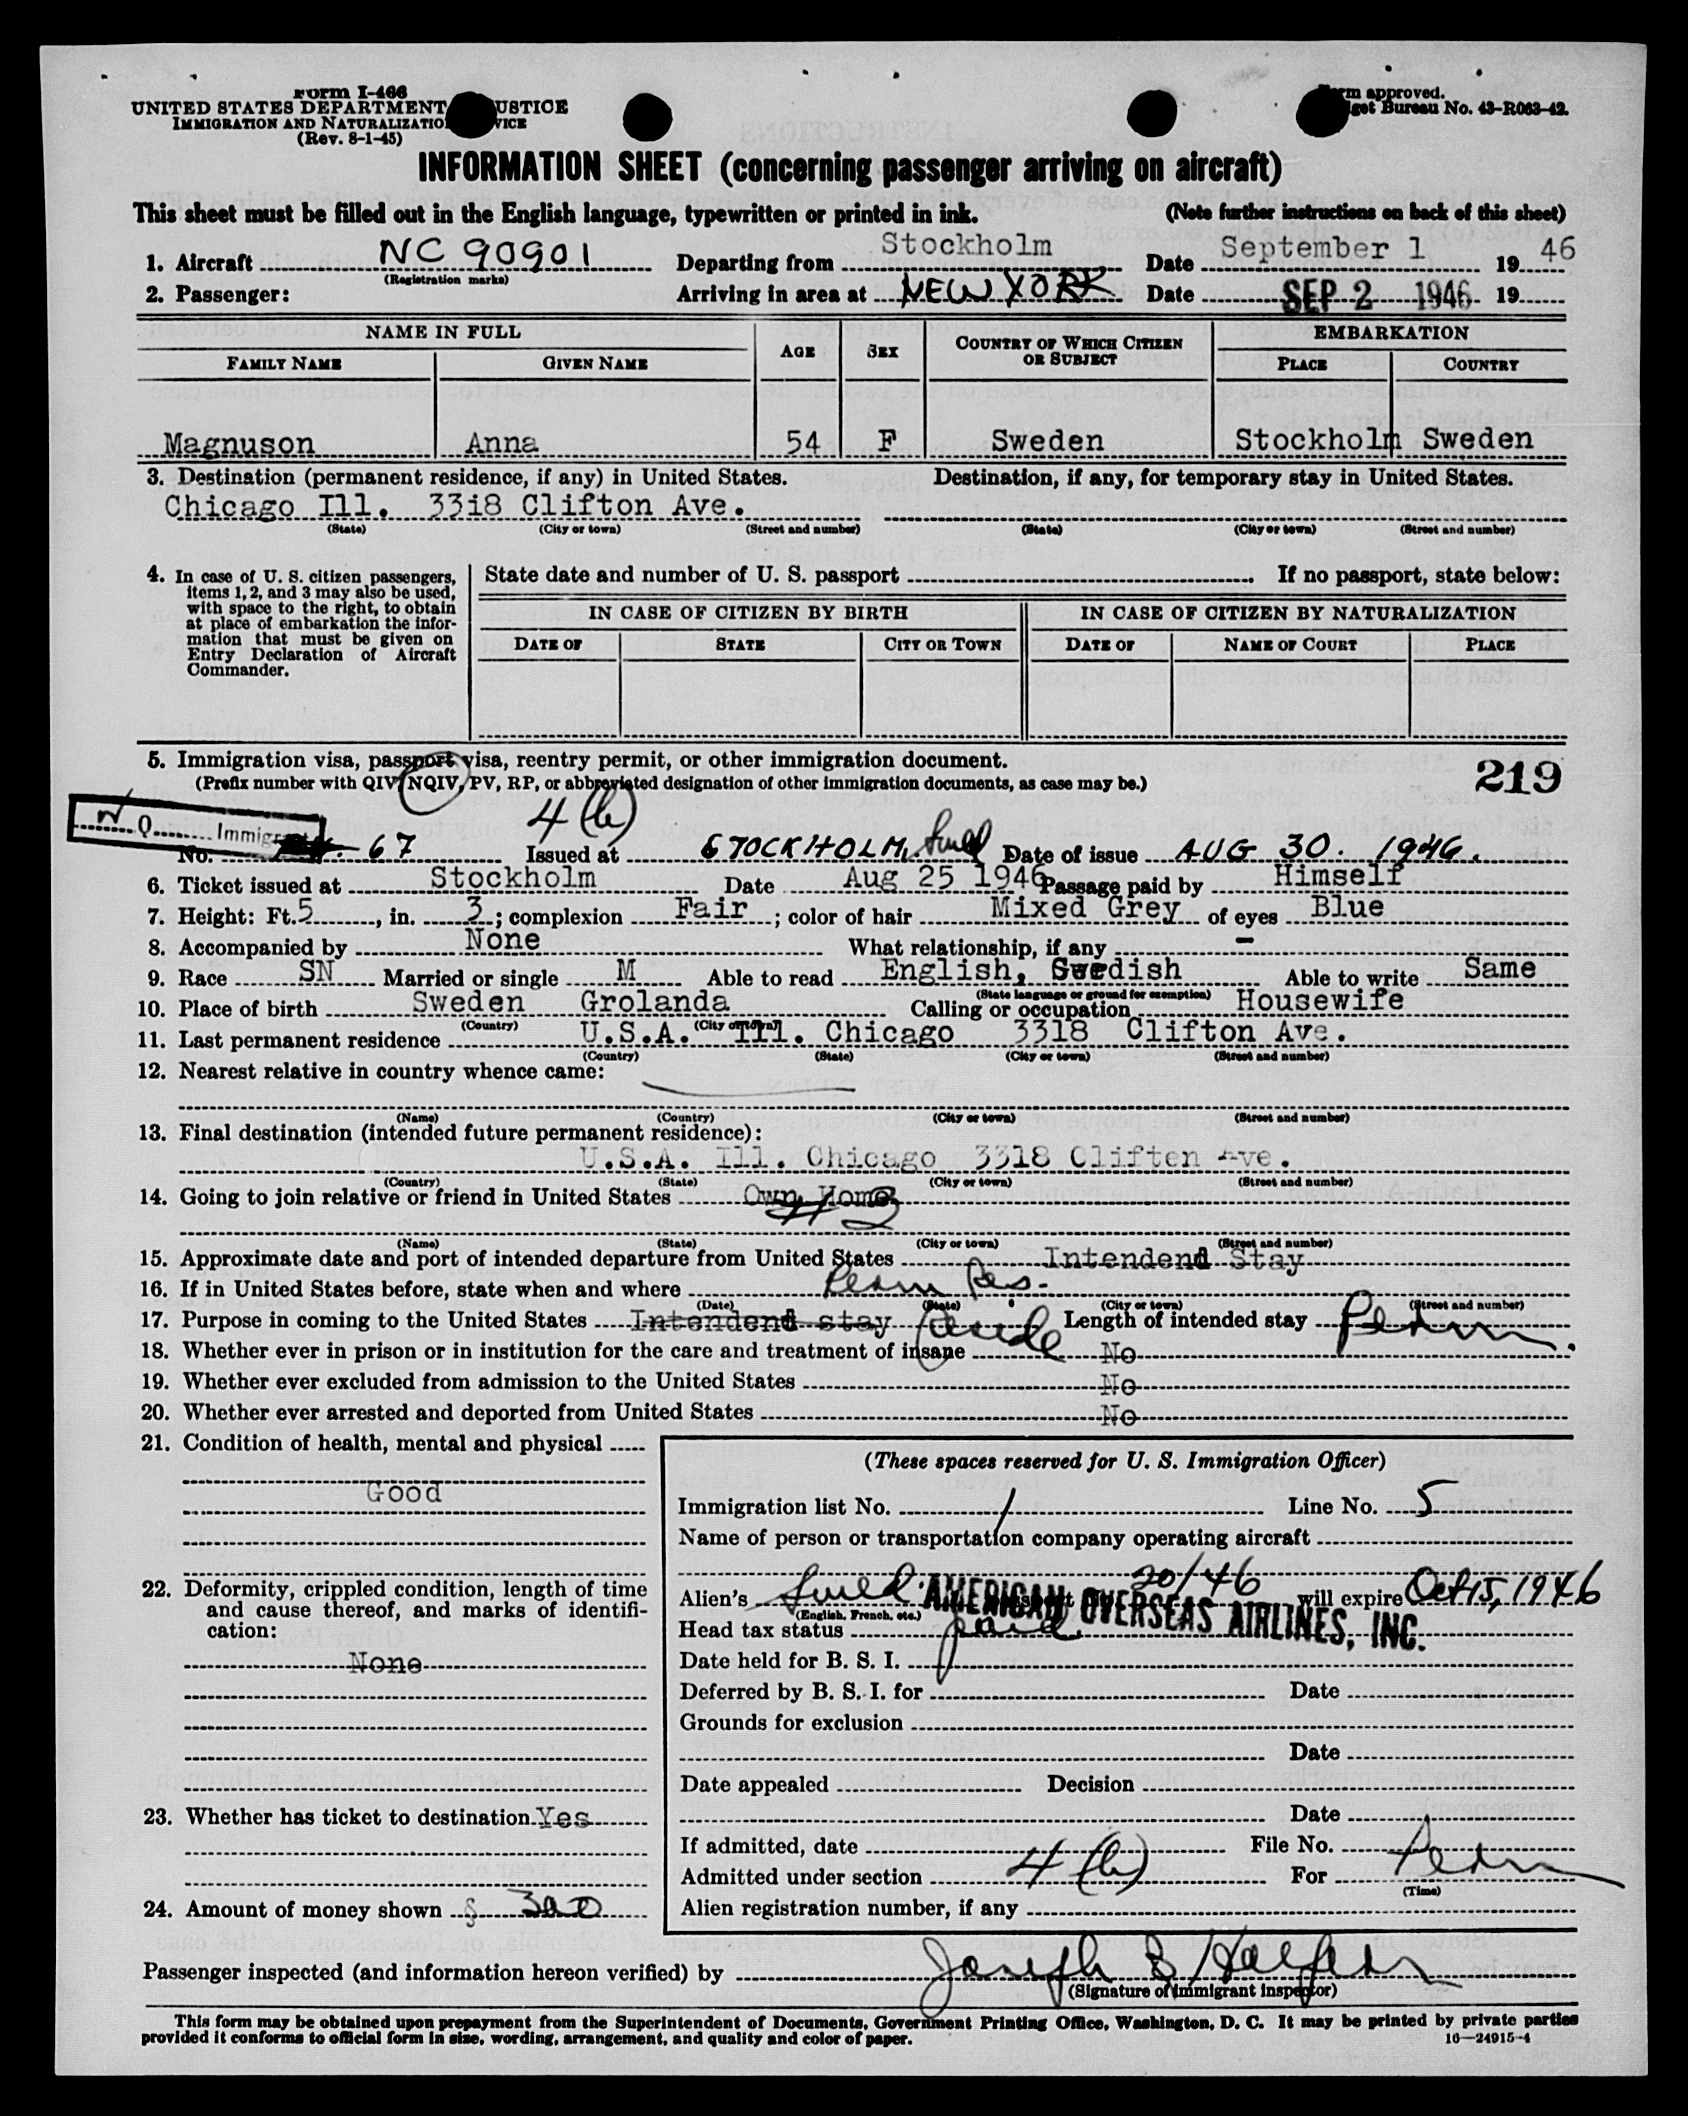 Form I-466
UNITED STATES DEPARTMENT JUSTICE
IMMIGRATION AND NATURALIZATION SERVICE
(Rev. 8-1-45)
Form approved.
Budget Bureau No. 43-R063-42.
INFORMATION SHEET (concerning passenger arriving on aircraft)
This sheet must be filled out in the English language, typewritten or printed in ink. (Note further instructions on back of this sheet)
1. Aircraft NC 90901 Departing from Stockholm Date September 1 1946
(Registration marks)
2. Passenger: Arriving in area at NEW YORK Date SEP 2 1946 19
NAME IN FULL AGE SEX COUNTRY OF WHICH CITIZEN OR SUBJECT EMBARKATION
FAMILY NAME GIVEN NAME PLACE COUNTRY
Magnuson Anna 54 F Sweden Stockholm Sweden
3. Destination (permanent residence, if any) in United States. Destination, if any, for temporary stay in United States.
Chicago Ill. 33i8 Clifton Ave.
(State) (City or town) (Street and number) (State) (City or town) (Street and number)
4. In case of U. S. citizen passengers, items 1, 2, and 3 may also be used, with space to the right, to obtain at place of embarkation the information that must be given on Entry Declaration of Aircraft Commander.
State date and number of U. S. passport If no passport, state below:
IN CASE OF CITIZEN BY BIRTH IN CASE OF CITIZEN BY NATURALIZATION
DATE OF STATE CITY OR TOWN DATE OF NAME OF COURT PLACE
5. Immigration visa, passport visa, reentry permit, or other immigration document.
(Prefix number with QIV, NQIV, PV, RP, or abbreviated designation of other immigration documents, as case may be.)
219
N Q Immigrant
4 (b)
No. 67 Issued at STOCKHOLM, Swed Date of issue AUG 30. 1946.
6. Ticket issued at Stockholm Date Aug 25 1946 Passage paid by Himself
7. Height: Ft. 5, in. 3; complexion Fair; color of hair Mixed Grey of eyes Blue
8. Accompanied by None What relationship, if any -
9. Race SN Married or single M Able to read English, Swedish Able to write Same
(State language or ground for exemption)
10. Place of birth Sweden Grolanda Calling or occupation Housewife
(Country) (City or town)
11. Last permanent residence U.S.A. Ill. Chicago 3318 Clifton Ave.
(Country) (State) (City or town) (Street and number)
12. Nearest relative in country whence came:
(Name) (Country) (City or town) (Street and number)
13. Final destination (intended future permanent residence):
U.S.A. Ill. Chicago 3318 Cliften Ave.
(Country) (State) (City or town) (Street and number)
14. Going to join relative or friend in United States Own Home
(Name) (State) (City or town) (Street and number)
15. Approximate date and port of intended departure from United States Intendend Stay
16. If in United States before, state when and where Perm Res.
(Date) (State) (City or town) (Street and number)
17. Purpose in coming to the United States Intendend stay reside Length of intended stay Perm.
18. Whether ever in prison or in institution for the care and treatment of insane No
19. Whether ever excluded from admission to the United States No
20. Whether ever arrested and deported from United States No
21. Condition of health, mental and physical
Good
22. Deformity, crippled condition, length of time and cause thereof, and marks of identification:
None
23. Whether has ticket to destination Yes
24. Amount of money shown $ 300
(These spaces reserved for U. S. Immigration Officer)
Immigration list No. 1 Line No. 5
Name of person or transportation company operating aircraft
AMERICAN OVERSEAS AIRLINES, INC.
Alien's Swed 20/46 will expire Oct 15, 1946
(English, French, etc.)
Head tax status paid
Date held for B. S. I.
Deferred by B. S. I. for Date
Grounds for exclusion
Date
Date appealed Decision
Date
If admitted, date File No.
Admitted under section 4 (b) For Perm
(Time)
Alien registration number, if any
Passenger inspected (and information hereon verified) by Joseph B Halpern
(Signature of immigrant inspector)
This form may be obtained upon prepayment from the Superintendent of Documents, Government Printing Office, Washington, D. C. It may be printed by private parties
provided it conforms to official form in size, wording, arrangement, and quality and color of paper. 16—24915-4